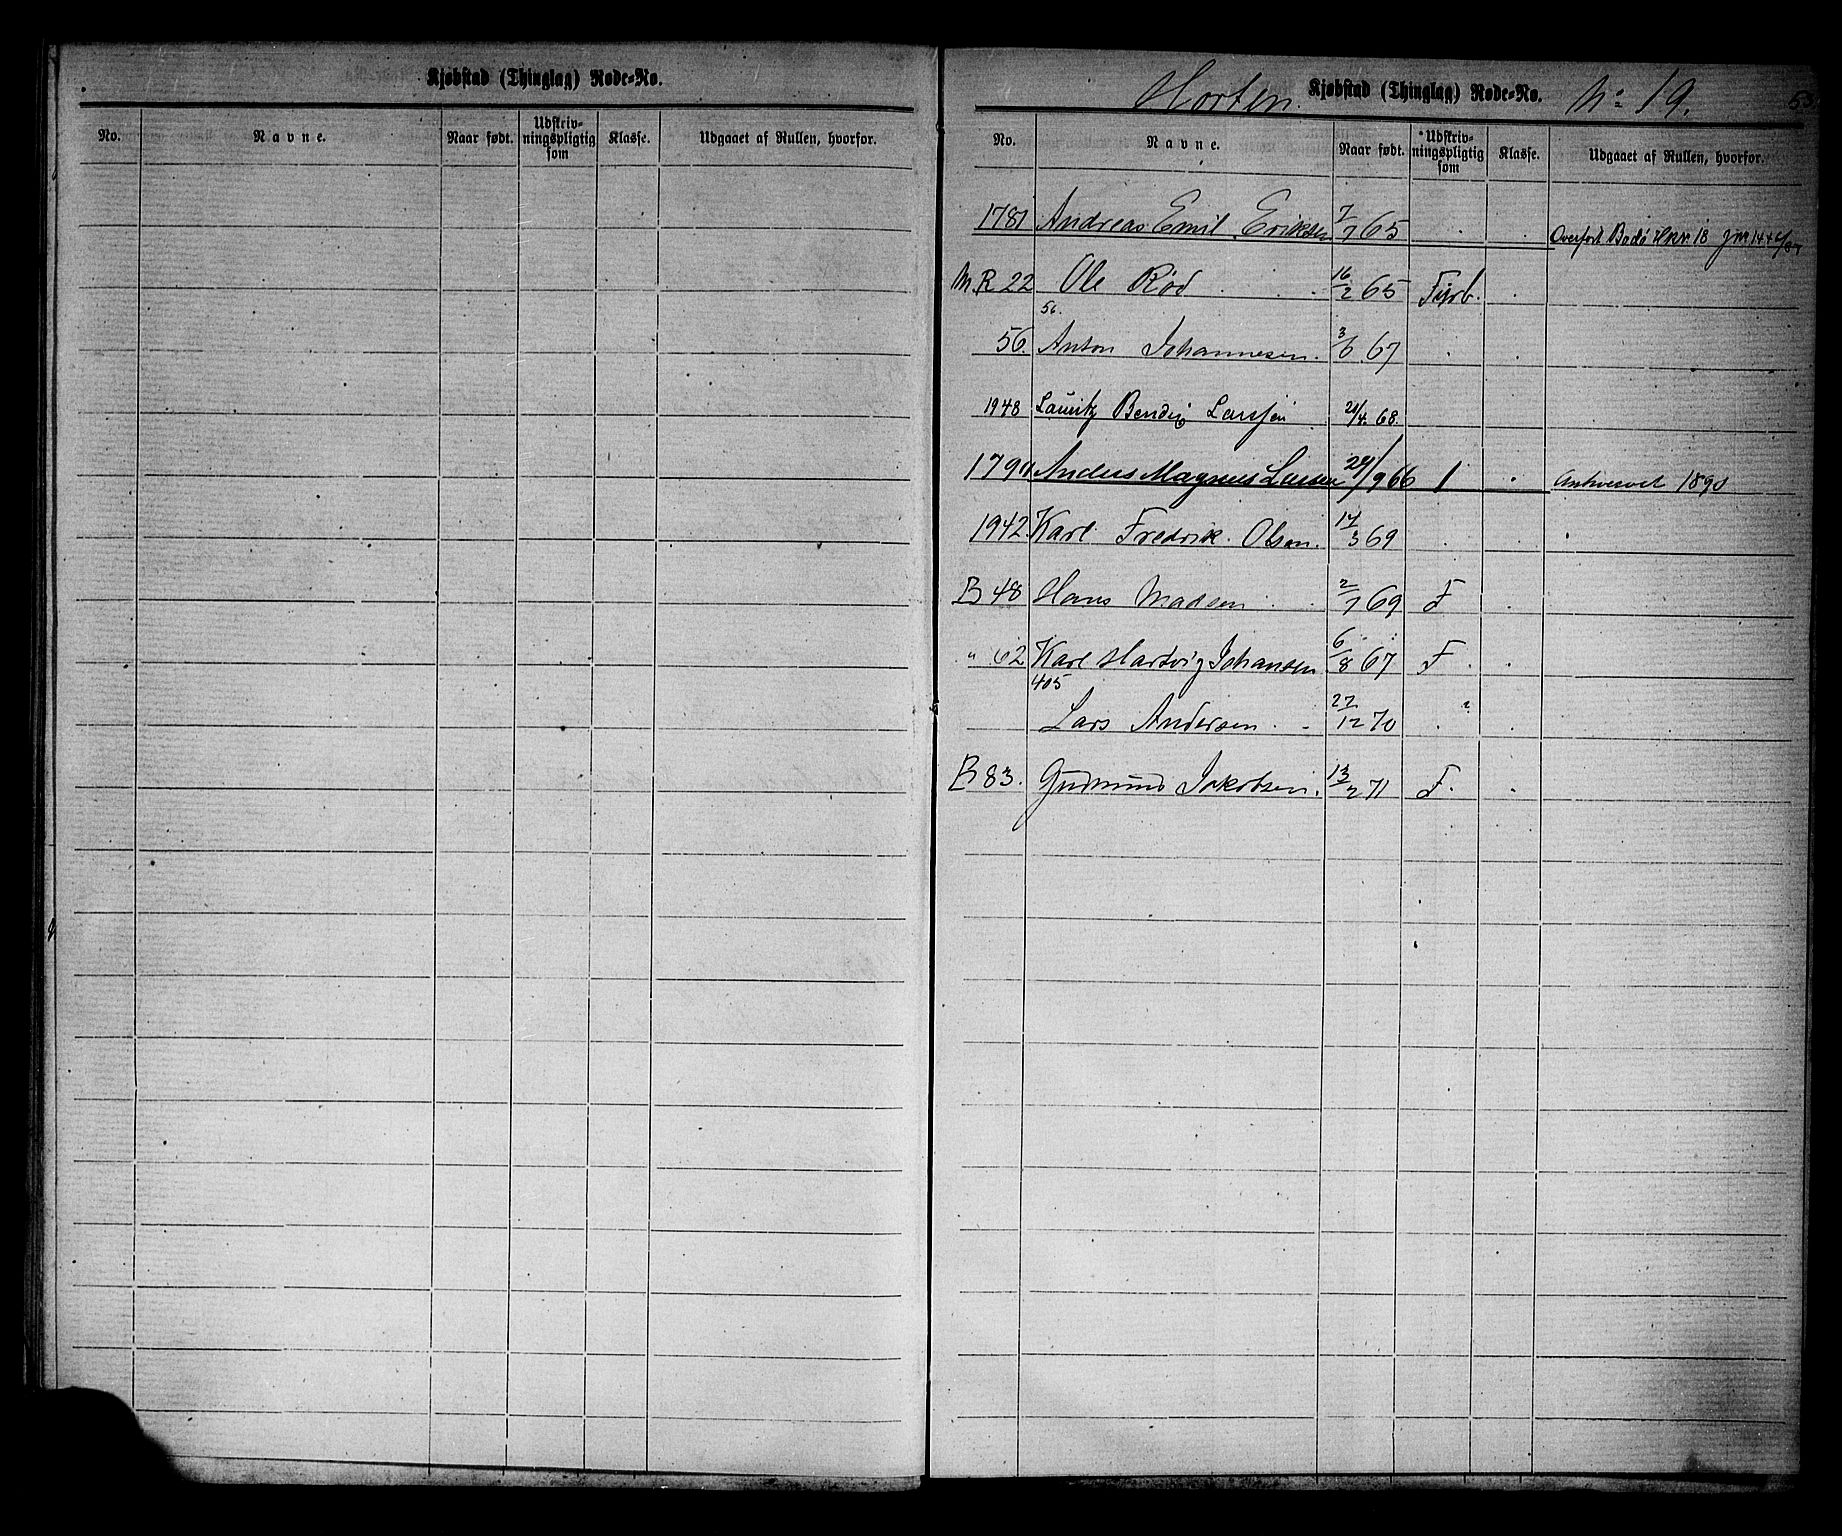 Kjøbstad (Thinglag) Rode-No.
No. Navne. Naar født. Udskriv-ningspligtig som Klasse. Udgaaet af Rullen, hvorfor.
Horten. Kjøbstad (Thinglag) Rode-No. No 19. 53
No. Navne. Naar født. Udskriv-ningspligtig som Klasse. Udgaaet af Rullen, hvorfor.
1781 Andreas Emil Eriksen 7/7 65 Overført Bodø 18
M.R 22 Ole Rød 16/2 65 Fyrb.
56.
56. Anton Johannesen. 3/6 67
1948 Lauritz Bendix Larssen 21/4. 68.
Anders Magnus Larsen 29/9 66 1 1890
1942. Karl Fredrik Olsen. 14/3 69
B 48 Hans Madsen 2/7 69 F
" 62 Karl Hartvig Johansen 6/8 67 F.
405
Lars Andersen 27/12 70 "
B 83. Gudmund Jakobsen. 13/2 71 F.